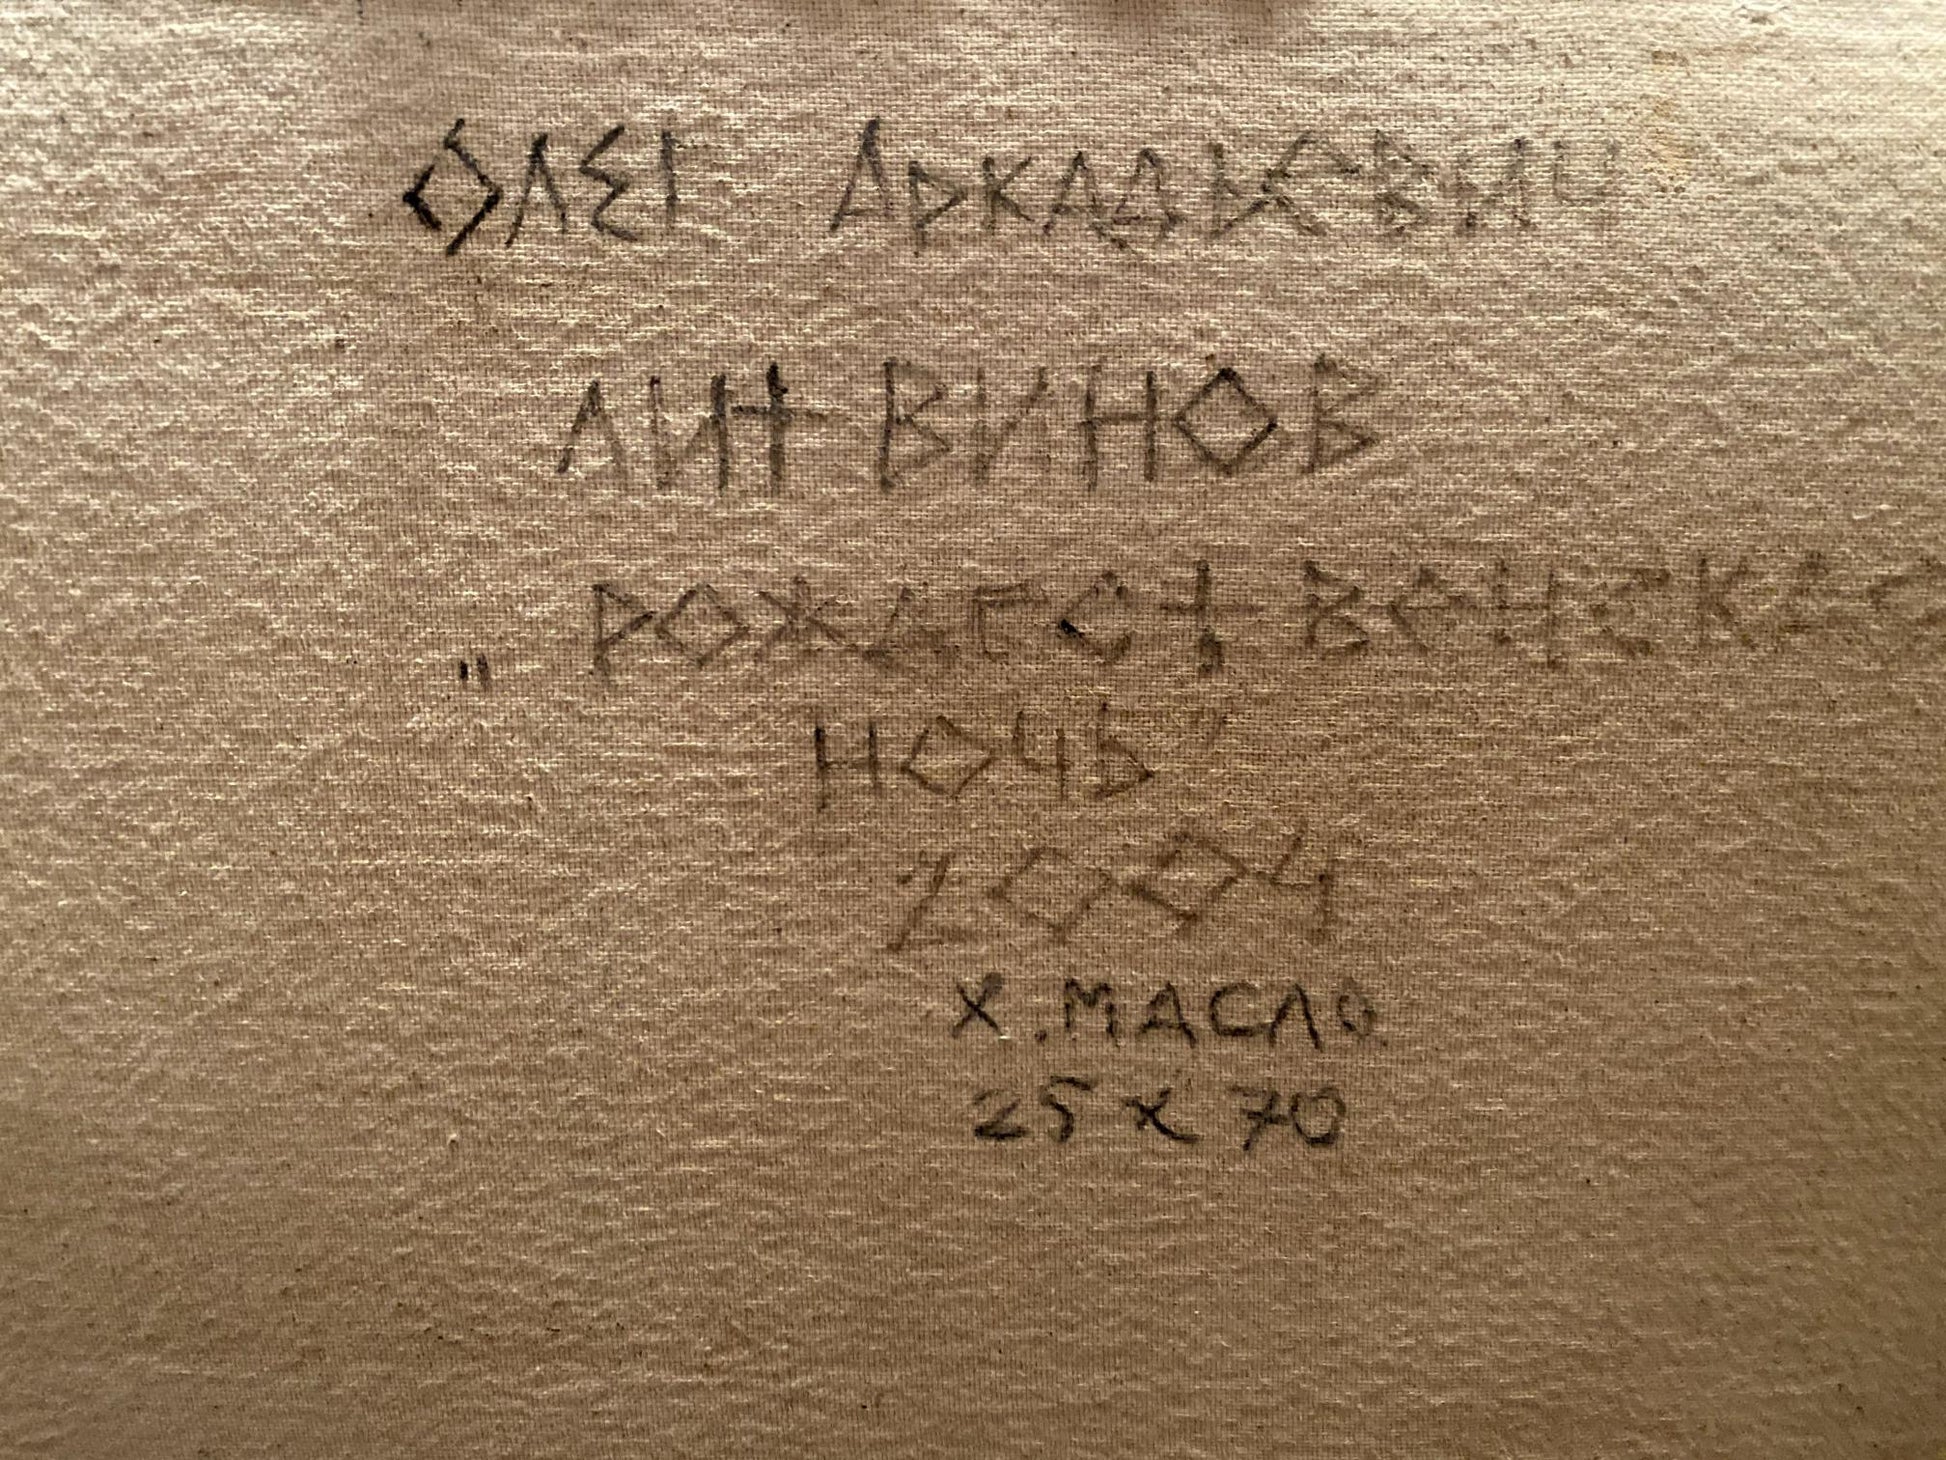 ОЛЕГ АРКАДЬЕВИЧ
ЛИТВИНОВ
„РОЖДЕСТВЕНСКАЯ
НОЧЬ"
2004
Х.МАСЛО
25х70